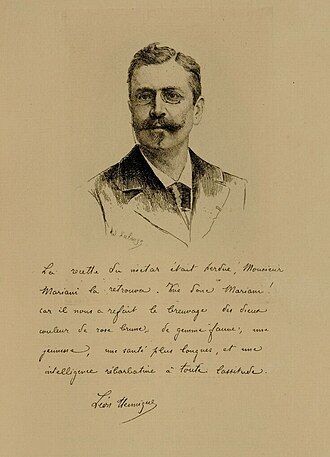 La recette du nectar était perdue, Monsieur
Mariani la retrouva. Vive donc Mariani!
car il nous a refait le breuvage des dieux
couleur de rose brune, de gemme fauve; une
jeunesse, une santé plus longues, et une
intelligence rébarbative à toute lassitude.
Léon Hennique